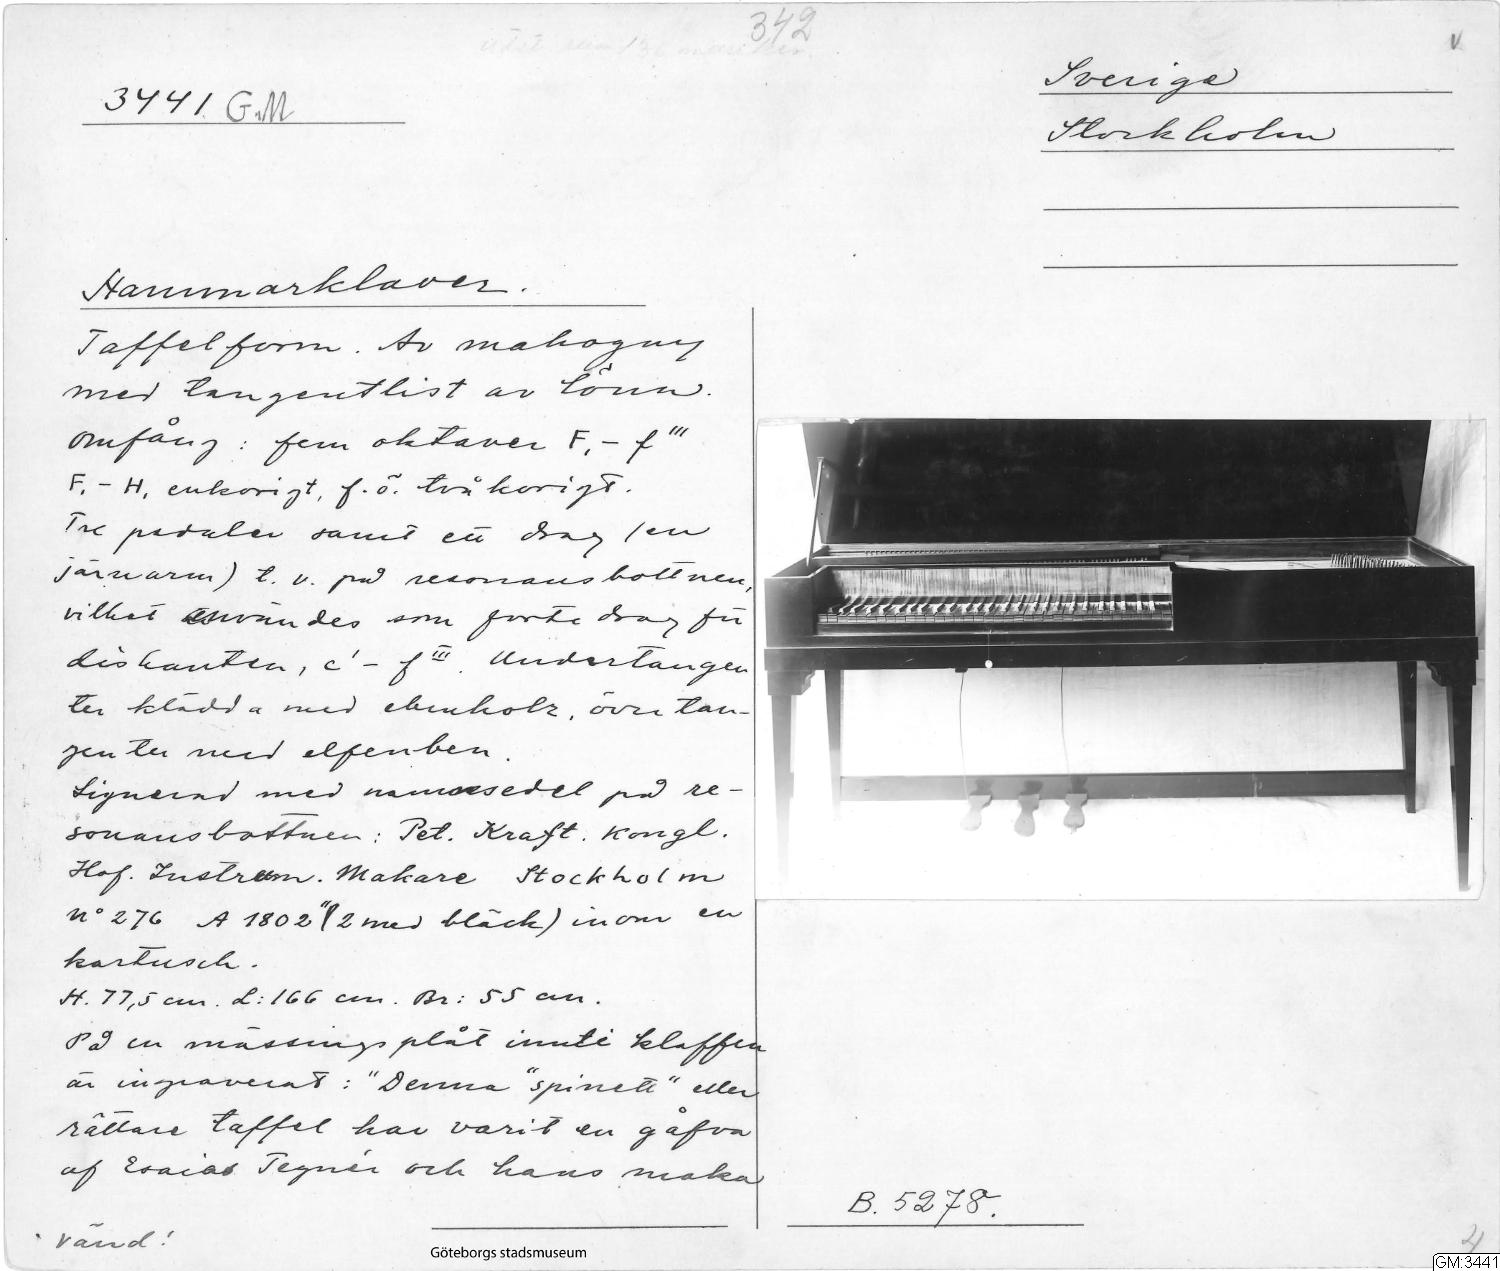 342
v
3441 G.M
Sverige
Stockholm
Hammarklaver.
Taffelform. Av mahogny
med tangentlist av lönn.
Omfång: fem oktaver F, - f'''
F, - H, enkorigt, f.ö. tvåkorigt.
Tre pedaler samt ett drag (en
järnarm) t. v. på resonansbottnen,
vilket användes som forte drag för
diskanten, c' - f'''. Undertangen
ter klädda med ebenholz, övre tan-
genter med elfenben.
Signerad med namnsedel på re-
sonansbottnen: Pet. Kraft. Kongl.
Hof. Instrum. Makare Stockholm
N° 276 A 1802" (2 med bläck) inom en
kartusch.
H. 77,5 cm. L: 166 cm. Br: 55 cm.
På en mässingsplåt innti klaffen
är ingraverat: "Denna "spinett" eller
rättare taffel har varit en gåfva
af Esaias Tegnér och hans maka
vänd!
B. 5278.
Göteborgs stadsmuseum
4
GM:3441